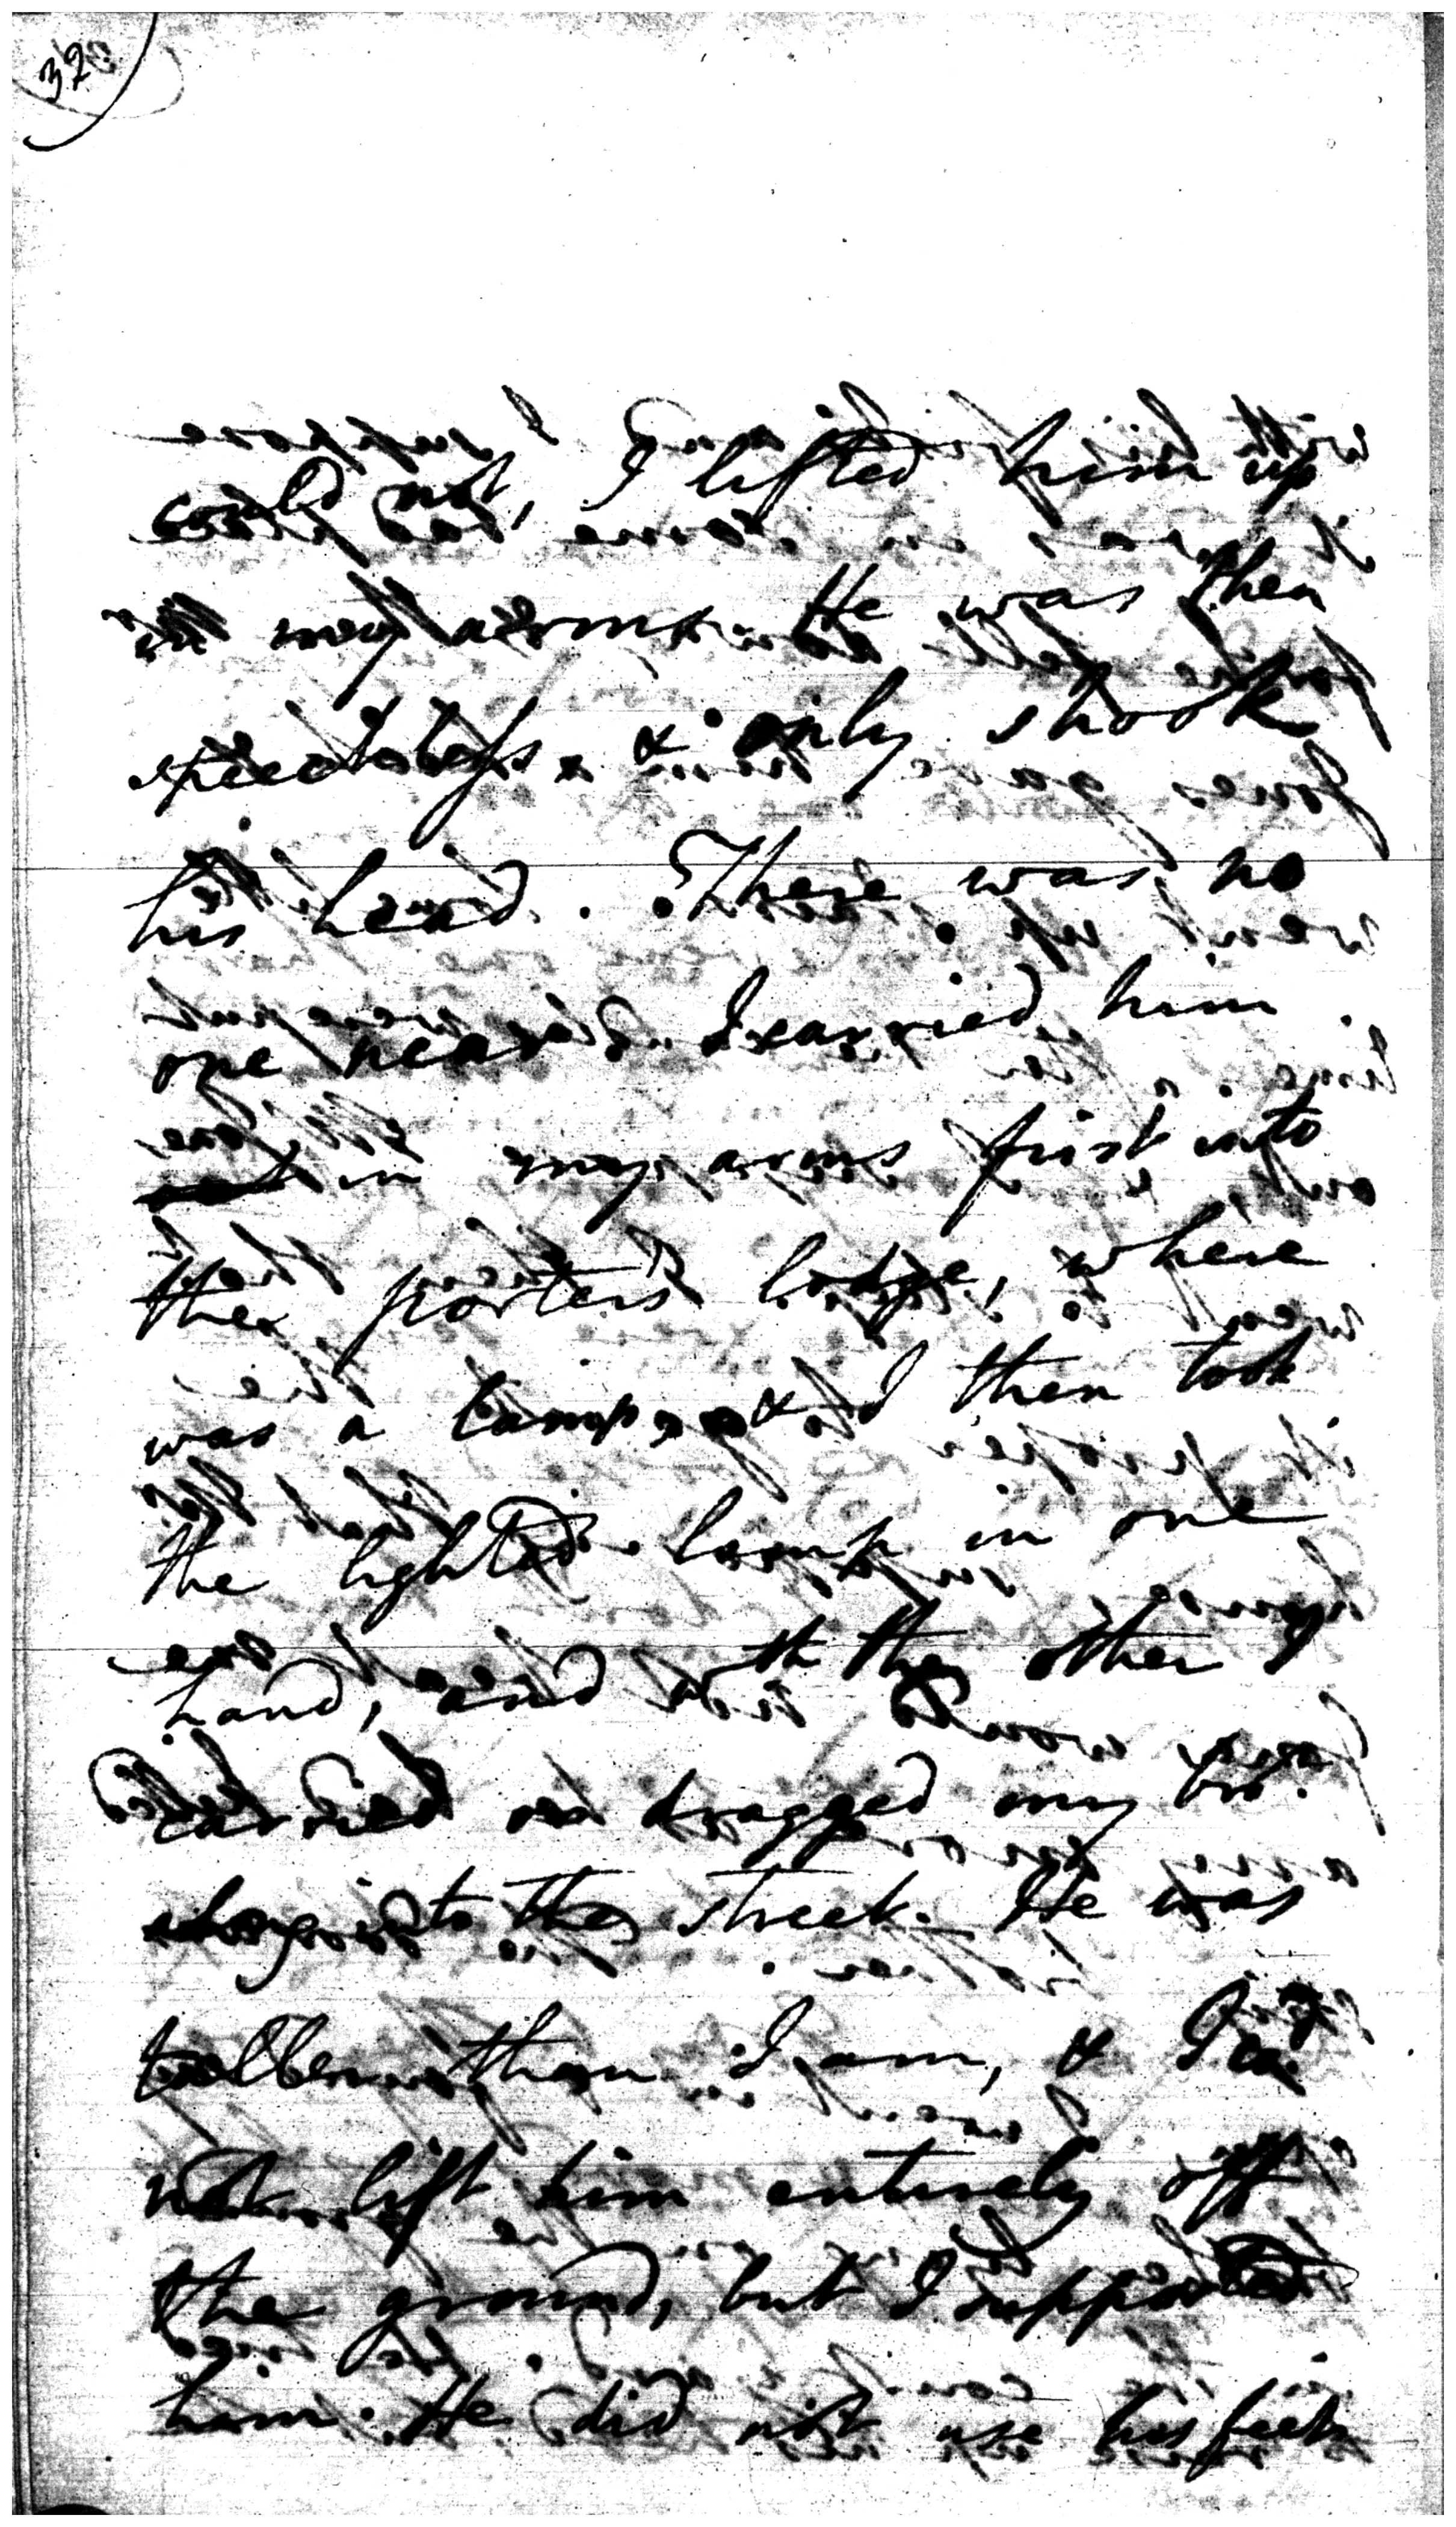 32
could not, I lifted him up
in my arms. He was then
speechless & only shook
his head. There was no
one near. I carried him
in my arms first into
the porter's lodge, where
was a lamp, & I then took
the lighted lamp in one
hand, and with the other I
carried or dragged my bro.
into the street. He was
taller than I am, & I cd.
not lift him entirely off
the ground, but I supported
him. He did not use his feet